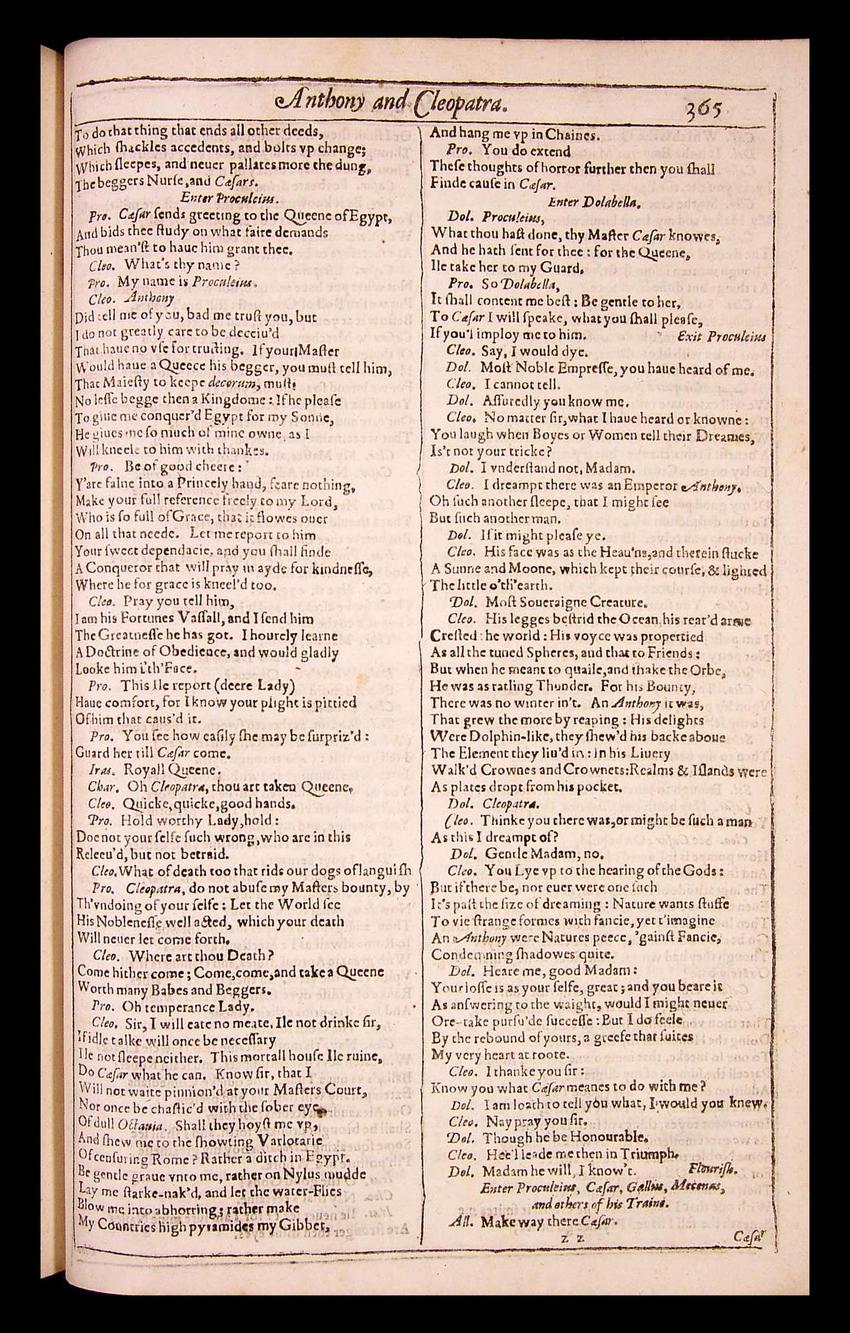 Anthony and Cleopatra. 365
To do that thing that ends all other deeds,
Which ſhackles accedents, and bolts vp change;
Which ſleepes, and neuer pallates more the dung,
The beggers Nurſe, and Cæſars.
Enter Proculeius.
Pro. Cæſar ſends greeting to the Queene of Egypt,
And bids thee ſtudy on what faire demands
Thou mean'ſt to haue him grant thee.
Cleo. What's thy name?
Pro. My name is Proculeius.
Cleo. Anthony
Did tell me of you, bad me truſt you, but
I do not greatly care to be deceiu'd
That haue no vſe for truſting. If your Maſter
Would haue a Queece his begger, you muſt tell him,
That Maieſty to keepe decorum, muſt
No leſſe begge then a Kingdome: If he pleaſe
To giue me conquer'd Egypt for my Sonne,
He giues me ſo much of mine owne, as I
Will kneele to him with thankes.
Pro. Be of good cheere:
Y'are falne into a Princely hand, feare nothing,
Make your full reference freely to my Lord,
Who is ſo full of Grace, that it flowes ouer
On all that neede. Let me report to him
Your ſweet dependacie, and you ſhall finde
A Conqueror that will pray in ayde for kindneſſe,
Where he for grace is kneel'd too.
Cleo. Pray you tell him,
I am his Fortunes Vaſſall, and I ſend him
The Greatneſſe he has got. I hourely learne
A Doctrine of Obedience, and would gladly
Looke him i'th'Face.
Pro. This Ile report (deere Lady)
Haue comfort, for I know your plight is pittied
Of him that caus'd it.
Pro. You ſee how eaſily ſhe may be ſurpriz'd:
Guard her till Cæſar come.
Iras. Royall Queene.
Char. Oh Cleopatra, thou art taken Queene.
Cleo. Quicke, quicke, good hands.
Pro. Hold worthy Lady, hold:
Doe not your ſelfe ſuch wrong, who are in this
Releeu'd, but not betraid.
Cleo. What of death too that rids our dogs of languiſh
Pro. Cleopatra, do not abuſe my Maſters bounty, by
Th'vndoing of your ſelfe: Let the World ſee
His Nobleneſſe well acted, which your death
Will neuer let come forth.
Cleo. Where art thou Death?
Come hither come; Come, come, and take a Queene
Worth many Babes and Beggers.
Pro. Oh temperance Lady.
Cleo. Sir, I will eate no meate, Ile not drinke ſir,
If idle talke will once be neceſſary
Ile not ſleepe neither. This mortall houſe Ile ruine,
Do Cæſar what he can. Know ſir, that I
Will not waite pinnion'd at your Maſters Court,
Nor once be chaſtic'd with the ſober eye
Of dull Octauia. Shall they hoyſt me vp,
And ſhew me to the ſhowting Varlotarie
Of cenſuring Rome? Rather a ditch in Egypt.
Be gentle graue vnto me, rather on Nylus mudde
Lay me ſtarke-nak'd, and let the water-Flies
Blow me into abhorring; rather make
My Countries high pyramides my Gibbet,
And hang me vp in Chaines.
Pro. You do extend
Theſe thoughts of horror further then you ſhall
Finde cauſe in Cæſar.
Enter Dolabella.
Dol. Proculeius,
What thou haſt done, thy Maſter Cæſar knowes,
And he hath ſent for thee: for the Queene,
Ile take her to my Guard.
Pro. So Dolabella,
It ſhall content me beſt: Be gentle to her,
To Cæſar I will ſpeake, what you ſhall pleaſe,
If you'l imploy me to him. Exit Proculeius
Cleo. Say, I would dye.
Dol. Moſt Noble Empreſſe, you haue heard of me.
Cleo. I cannot tell.
Dol. Aſſuredly you know me.
Cleo. No matter ſir, what I haue heard or knowne:
You laugh when Boyes or Women tell their Dreames,
Is't not your tricke?
Dol. I vnderſtand not, Madam.
Cleo. I dreampt there was an Emperor Anthony.
Oh ſuch another ſleepe, that I might ſee
But ſuch another man.
Dol. If it might pleaſe ye.
Cleo. His face was as the Heau'ns, and therein ſtucke
A Sunne and Moone, which kept their courſe, & lighted
The little o'th'earth.
Dol. Moſt Soueraigne Creature.
Cleo. His legges beſtrid the Ocean, his rear'd arme
Creſted the world: His voyce was propertied
As all the tuned Spheres, and that to Friends:
But when he meant to quaile, and ſhake the Orbe,
He was as ratling Thunder. For his Bounty,
There was no winter in't. An Anthony it was,
That grew the more by reaping: His delights
Were Dolphin-like, they ſhew'd his backe aboue
The Element they liu'd in: In his Liuery
Walk'd Crownes and Crownets: Realms & Iſlands were
As plates dropt from his pocket.
Dol. Cleopatra.
Cleo. Thinke you there was, or might be ſuch a man
As this I dreampt of?
Dol. Gentle Madam, no.
Cleo. You Lye vp to the hearing of the Gods:
But if there be, nor euer were one ſuch
It's paſt the ſize of dreaming: Nature wants ſtuffe
To vie ſtrange formes with fancie, yet t'imagine
An Anthony were Natures peece, 'gainſt Fancie,
Condemning ſhadowes quite.
Dol. Heare me, good Madam:
Your loſſe is as your ſelfe, great; and you beare it
As anſwering to the waight, would I might neuer
Ore-take purſu'de ſucceſſe: But I do feele
By the rebound of yours, a greefe that ſuites
My very heart at roote.
Cleo. I thanke you ſir:
Know you what Cæſar meanes to do with me?
Dol. I am loath to tell you what, I would you knew.
Cleo. Nay pray you ſir.
Dol. Though he be Honourable.
Cleo. Hee'l leade me then in Triumph.
Dol. Madam he will, I know't. Flouriſh.
Enter Proculeius, Cæſar, Gallus, Mecenas,
and others of his Traine.
All. Make way there Cæſar.
z z Cæſar